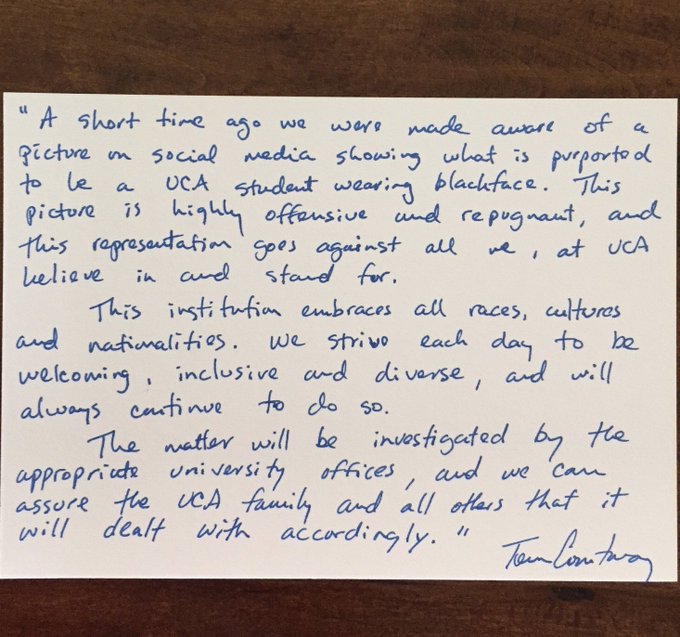 "A short time ago we were made aware of a
picture on social media showing what is purported
to be a UCA student wearing blackface. This
picture is highly offensive and repugnant, and
this representation goes against all we, at UCA
believe in and stand for.
This institution embraces all races, cultures
and nationalities. We strive each day to be
welcoming, inclusive and diverse, and will
always continue to do so.
The matter will be investigated by the
appropriate university offices, and we can
assure the UCA family and all others that it
will dealt with accordingly."
Tom Courtway